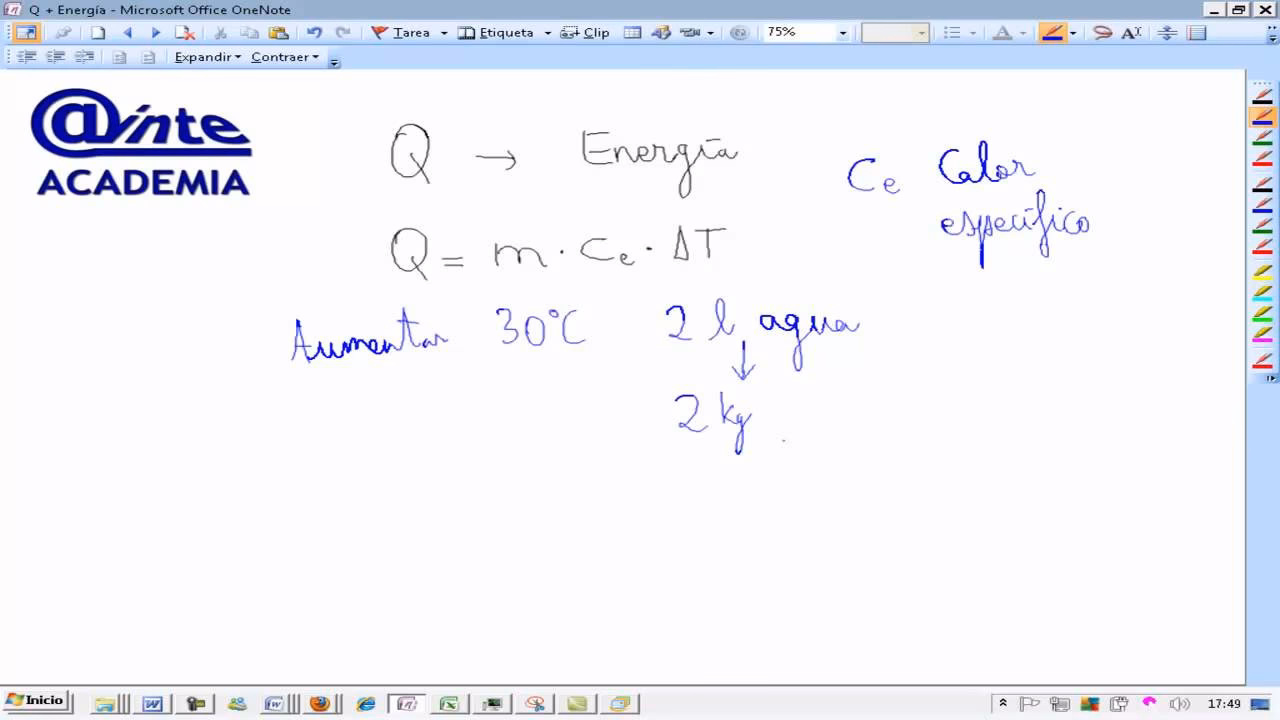 Q + Energía - Microsoft Office OneNote
Tarea Etiqueta Clip 75%
Expandir Contraer
@inte
ACADEMIA
Q → Energía
Ce Calor
específico
Q = m · Ce · ΔT
Aumentar 30°C 2 l agua
↓
2 kg
Inicio
17:49